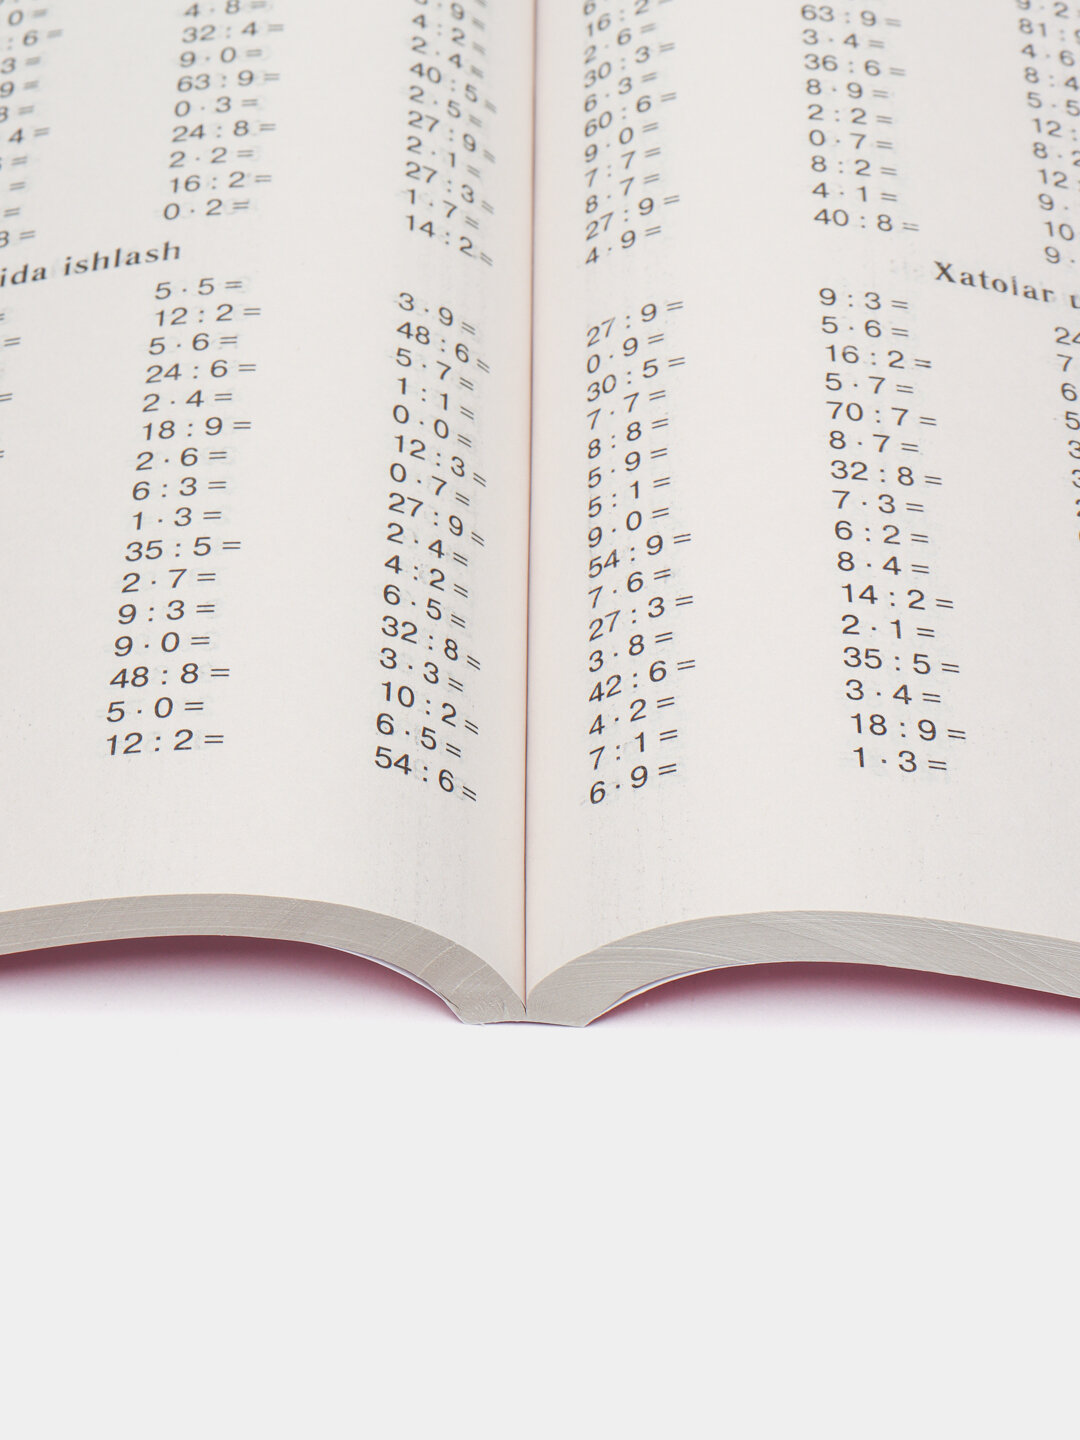 4 · 8 =
32 : 4 =
9 · 0 =
63 : 9 =
0 · 3 =
24 : 8 =
2 · 2 =
16 : 2 =
0 · 2 =
4 : 2 =
2 · 4 =
40 : 5 =
2 · 5 =
27 : 9 =
2 · 1 =
27 : 3 =
1 · 7 =
14 : 2 =
ishlash
5 · 5 =
12 : 2 =
5 · 6 =
24 : 6 =
2 · 4 =
18 : 9 =
2 · 6 =
6 : 3 =
1 · 3 =
35 : 5 =
2 · 7 =
9 : 3 =
9 · 0 =
48 : 8 =
5 · 0 =
12 : 2 =
3 · 9 =
48 : 6 =
5 · 7 =
1 : 1 =
0 · 0 =
12 : 3 =
0 · 7 =
27 : 9 =
2 · 4 =
4 : 2 =
6 · 5 =
32 : 8 =
3 · 3 =
10 : 2 =
6 · 5 =
54 : 6 =
16 : 2 =
2 · 6 =
30 : 3 =
6 · 3 =
60 : 6 =
9 · 0 =
7 : 7 =
8 · 7 =
27 : 9 =
4 · 9 =
63 : 9 =
3 · 4 =
36 : 6 =
8 · 9 =
2 : 2 =
0 · 7 =
8 : 2 =
4 · 1 =
40 : 8 =
Xatolar
27 : 9 =
0 · 9 =
30 : 5 =
7 · 7 =
8 : 8 =
5 · 9 =
5 : 1 =
9 · 0 =
54 : 9 =
7 · 6 =
27 : 3 =
3 · 8 =
42 : 6 =
4 · 2 =
7 : 1 =
6 · 9 =
9 : 3 =
5 · 6 =
16 : 2 =
5 · 7 =
70 : 7 =
8 · 7 =
32 : 8 =
7 · 3 =
6 : 2 =
8 · 4 =
14 : 2 =
2 · 1 =
35 : 5 =
3 · 4 =
18 : 9 =
1 · 3 =